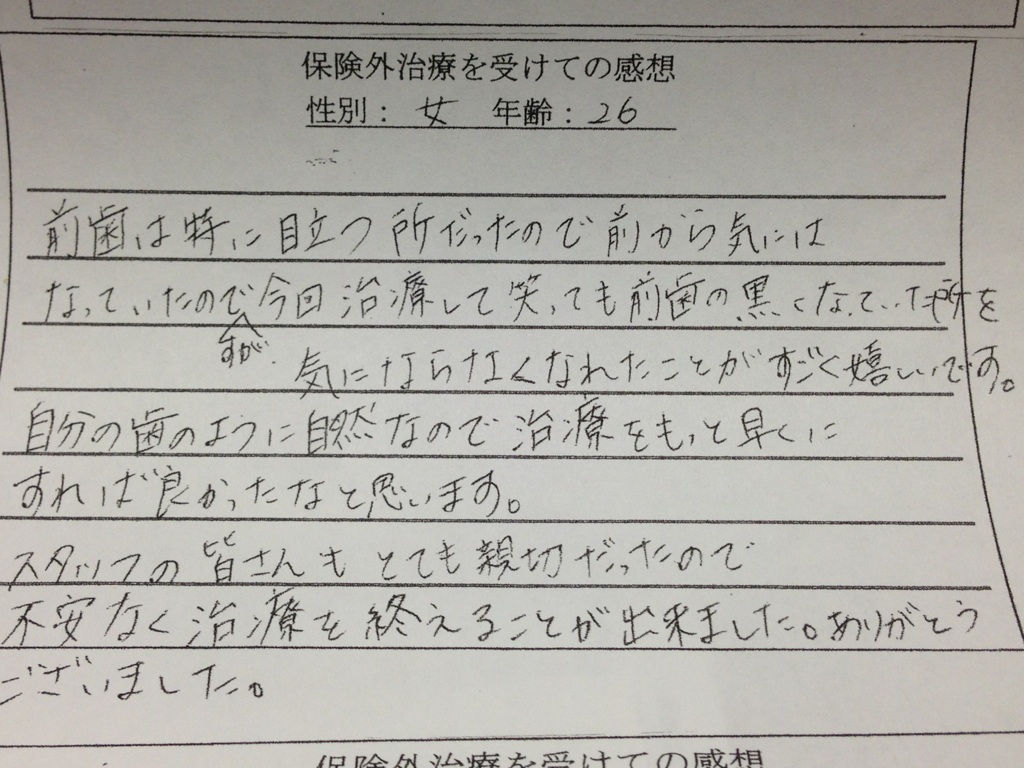 保険外治療を受けての感想
性別： 女 年齢：26
前歯は特に目立つ所だったので前から気には
なっていたのですが今回治療して笑っても前歯の黒くなっていた所を
気にならなくなれたことがすごく嬉しいです。
自分の歯のように自然なので治療をもっと早くに
すれば良かったなと思います。
スタッフの皆さんもとても親切だったので
不安なく治療を終えることが出来ました。ありがとう
ございました。
保険外治療を受けての感想